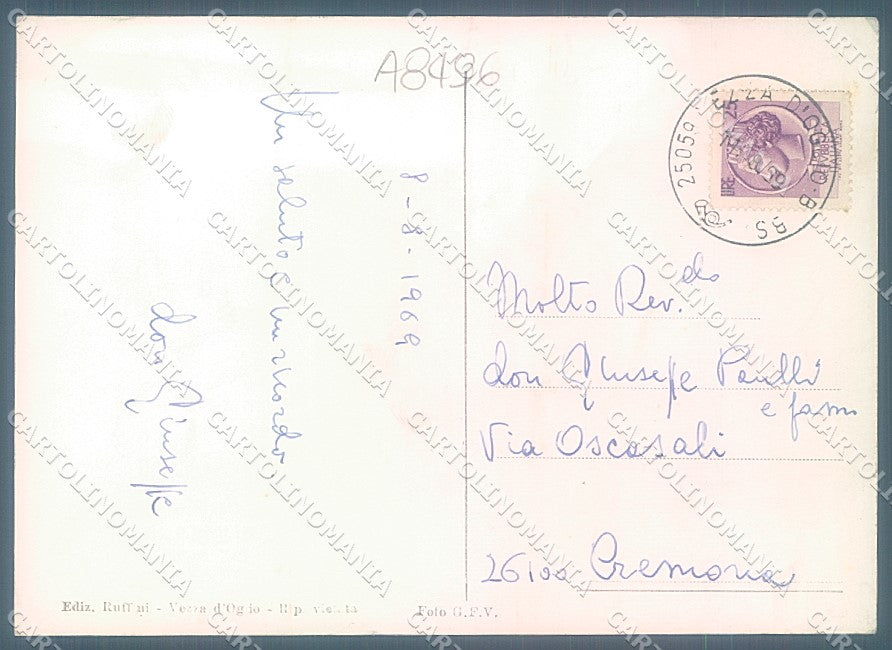 A8496
8-8-1969
Un saluto e un ricordo
don Giuseppe
25059 VEZZA D'OGLIO BS
LIRE 25
Molto Rev.do
don Giuseppe Pandli
e fam
Via Oscasali
26100 Cremona
Ediz. Ruffini - Vezza d'Oglio - Rip. vietata
Foto G.F.V.
CARTOLINOMANIA